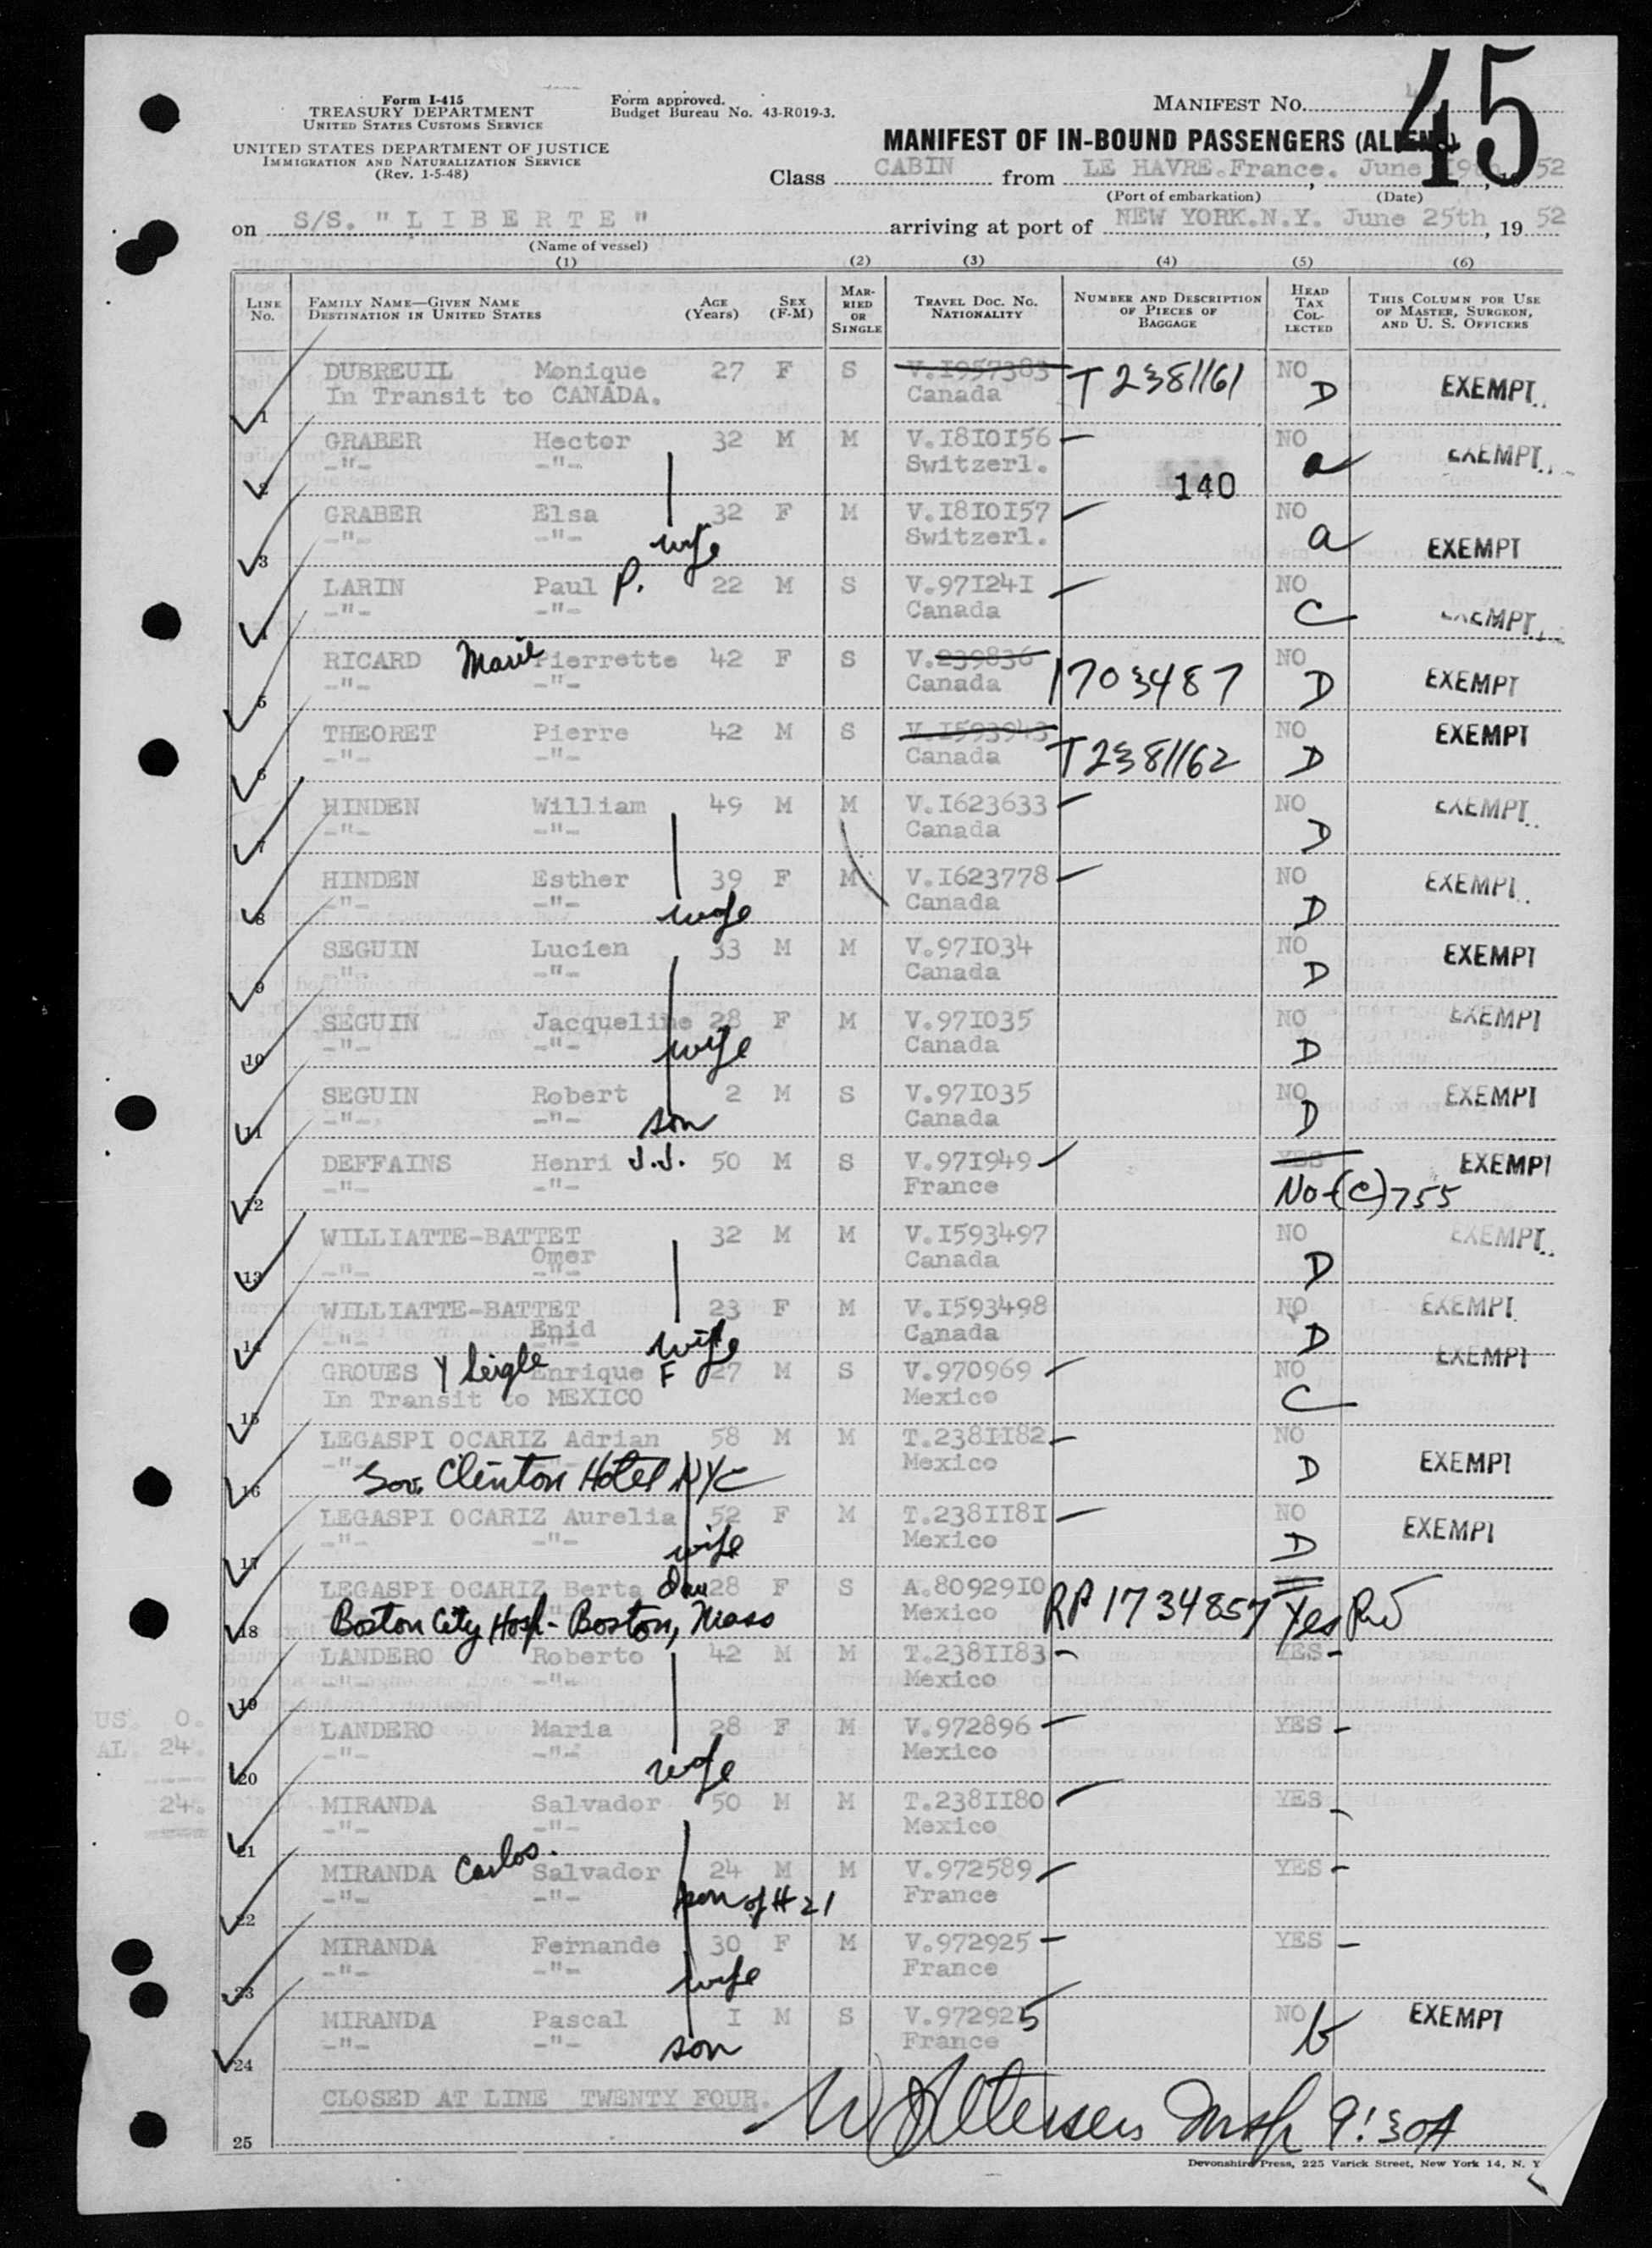 45
Form I-415
TREASURY DEPARTMENT
UNITED STATES CUSTOMS SERVICE
UNITED STATES DEPARTMENT OF JUSTICE
IMMIGRATION AND NATURALIZATION SERVICE
(Rev. 1-5-48)
Form approved.
Budget Bureau No. 43-R019-3.
MANIFEST NO.
MANIFEST OF IN-BOUND PASSENGERS (ALIENS)
Class CABIN from LE HAVRE.France. , June 19th , 19 52
(Port of embarkation) (Date)
on S/S. " L I B E R T E " arriving at port of NEW YORK.N.Y. June 25th , 19 52
(Name of vessel)
(1) (2) (3) (4) (5) (6)
LINE No. FAMILY NAME—GIVEN NAME DESTINATION IN UNITED STATES AGE (Years) SEX (F-M) MARRIED OR SINGLE TRAVEL DOC. NO. NATIONALITY NUMBER AND DESCRIPTION OF PIECES OF BAGGAGE HEAD TAX COLLECTED THIS COLUMN FOR USE OF MASTER, SURGEON, AND U. S. OFFICERS
DUBREUIL Monique 27 F S V.1957383 T2381161 NO EXEMPT
1 In Transit to CANADA. Canada D
GRABER Hector 32 M M V.I8I0I56 NO EXEMPT
2 -"- -"- Switzerl. 140 a
GRABER Elsa 32 F M V.I8I0I57 NO
3 -"- -"- wife Switzerl. a EXEMPT
LARIN Paul P. 22 M S V.97I24I NO
4 -"- -"- Canada C EXEMPT
RICARD Marie Pierrette 42 F S V.239836 1703487 NO EXEMPT
5 -"- -"- Canada D
THEORET Pierre 42 M S V.I593943 T2381162 NO EXEMPT
6 -"- -"- Canada D
HINDEN William 49 M M V.I623633 NO EXEMPT
7 -"- -"- Canada D
HINDEN Esther 39 F M V.I623778 NO EXEMPT
8 -"- -"- wife Canada D
SEGUIN Lucien 33 M M V.97I034 NO EXEMPT
9 -"- -"- Canada D
SEGUIN Jacqueline 28 F M V.97I035 NO EXEMPT
10 -"- -"- wife Canada D
SEGUIN Robert 2 M S V.97I035 NO EXEMPT
11 -"- -"- son Canada D
DEFFAINS Henri J.J. 50 M S V.97I949 YES EXEMPT
12 -"- -"- France No-(C)755
WILLIATTE-BATTET 32 M M V.I593497 NO EXEMPT
Omer
13 -"- -"- Canada D
WILLIATTE-BATTET 23 F M V.I593498 NO EXEMPT
Enid
14 -"- -"- wife Canada D
GROUES Y Seigle Enrique F 27 M S V.970969 NO EXEMPT
15 In Transit to MEXICO Mexico C
LEGASPI OCARIZ Adrian 58 M M T.238II82 NO EXEMPT
16 -"- Gov. Clinton Hotel NYC Mexico D
LEGASPI OCARIZ Aurelia 52 F M T.238II8I NO EXEMPT
17 -"- -"- wife Mexico D
LEGASPI OCARIZ Berta Dau 28 F S A.80929I0 RP 1734857 Yes
18 Boston City Hosp- Boston, Mass Mexico
LANDERO Roberto 42 M M T.238II83 YES
19 -"- -"- Mexico
LANDERO Maria 28 F M V.972896 YES
20 -"- -"- wife Mexico
US. 0.
AL. 24.
24.
MIRANDA Salvador 50 M M T.238II80 YES
21 -"- -"- Mexico
MIRANDA Carlos. Salvador 24 M M V.972589 YES
22 -"- -"- son of # 21 France
MIRANDA Fernande 30 F M V.972925 YES
23 -"- -"- wife France
MIRANDA Pascal I M S V.972925 NO EXEMPT
24 -"- -"- son France b
CLOSED AT LINE TWENTY FOUR.
25 Insp 9:30A
Devonshire Press, 225 Varick Street, New York 14, N. Y